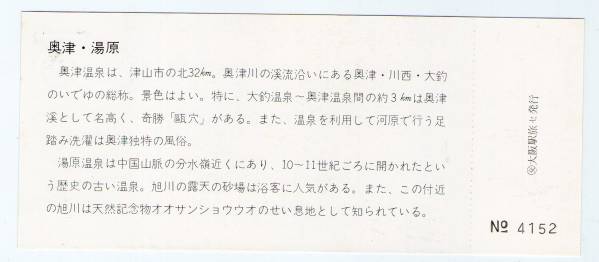 奥津・湯原
奥津温泉は、津山市の北32㎞。奥津川の渓流沿いにある奥津・川西・大釣
のいでゆの総称。景色はよい。特に、大釣温泉～奥津温泉間の約３㎞は奥津
渓として名高く、奇勝「甌穴」がある。また、温泉を利用して河原で行う足
踏み洗濯は奥津独特の風俗。
湯原温泉は中国山脈の分水嶺近くにあり、10～11世紀ごろに開かれたとい
う歴史の古い温泉。旭川の露天の砂場は浴客に人気がある。また、この付近
の旭川は天然記念物オオサンショウウオのせい息地として知られている。
大阪駅旅セ発行
№ 4152